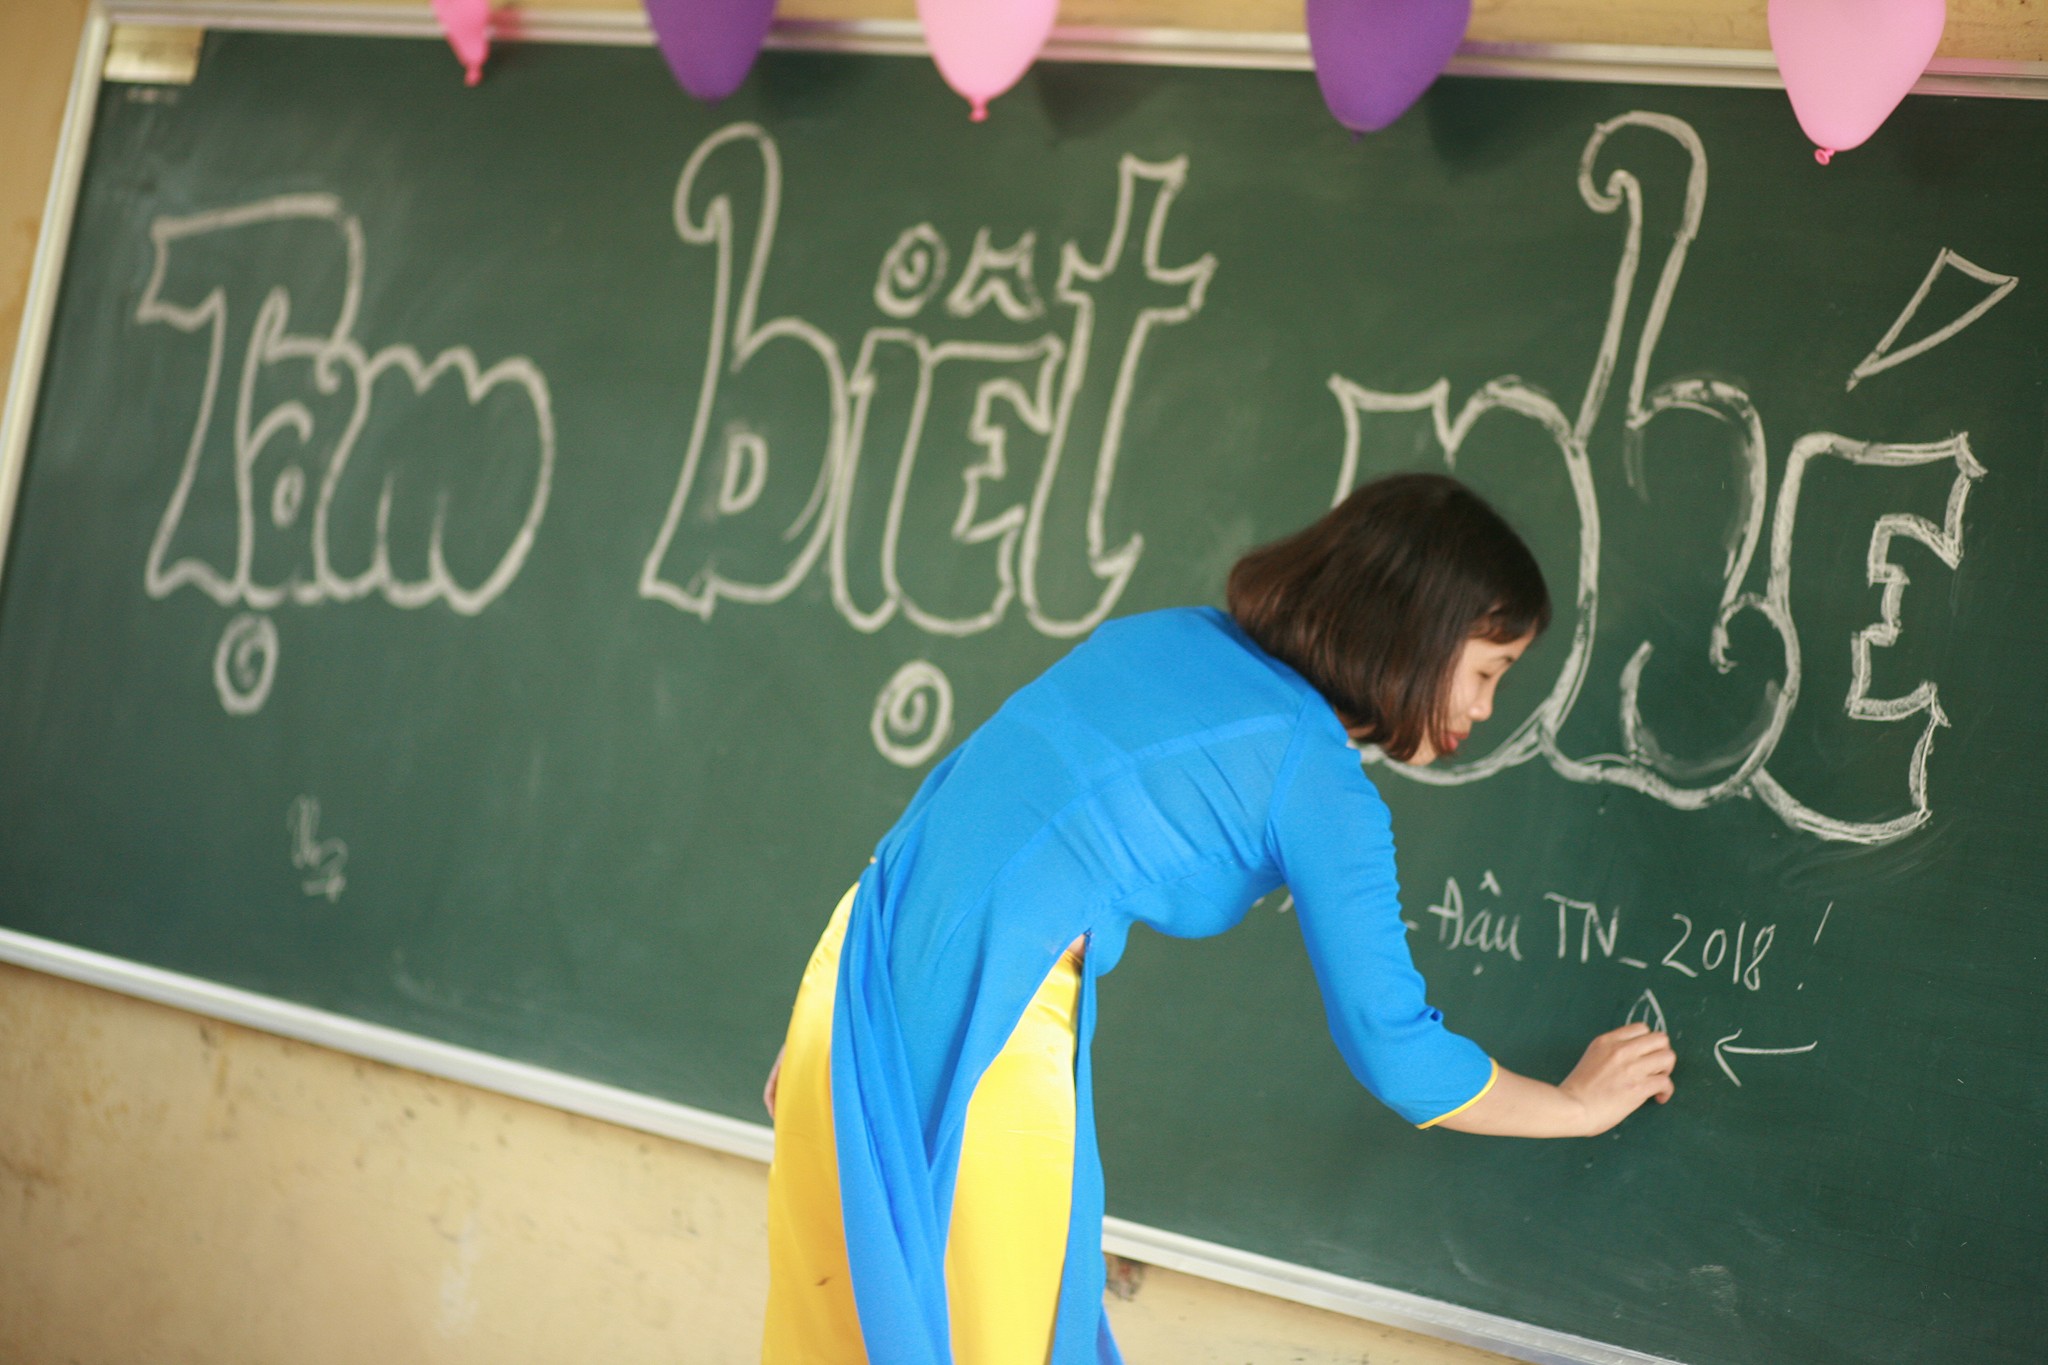 Tạm biệt nhÉ
- Đậu TN_2018!